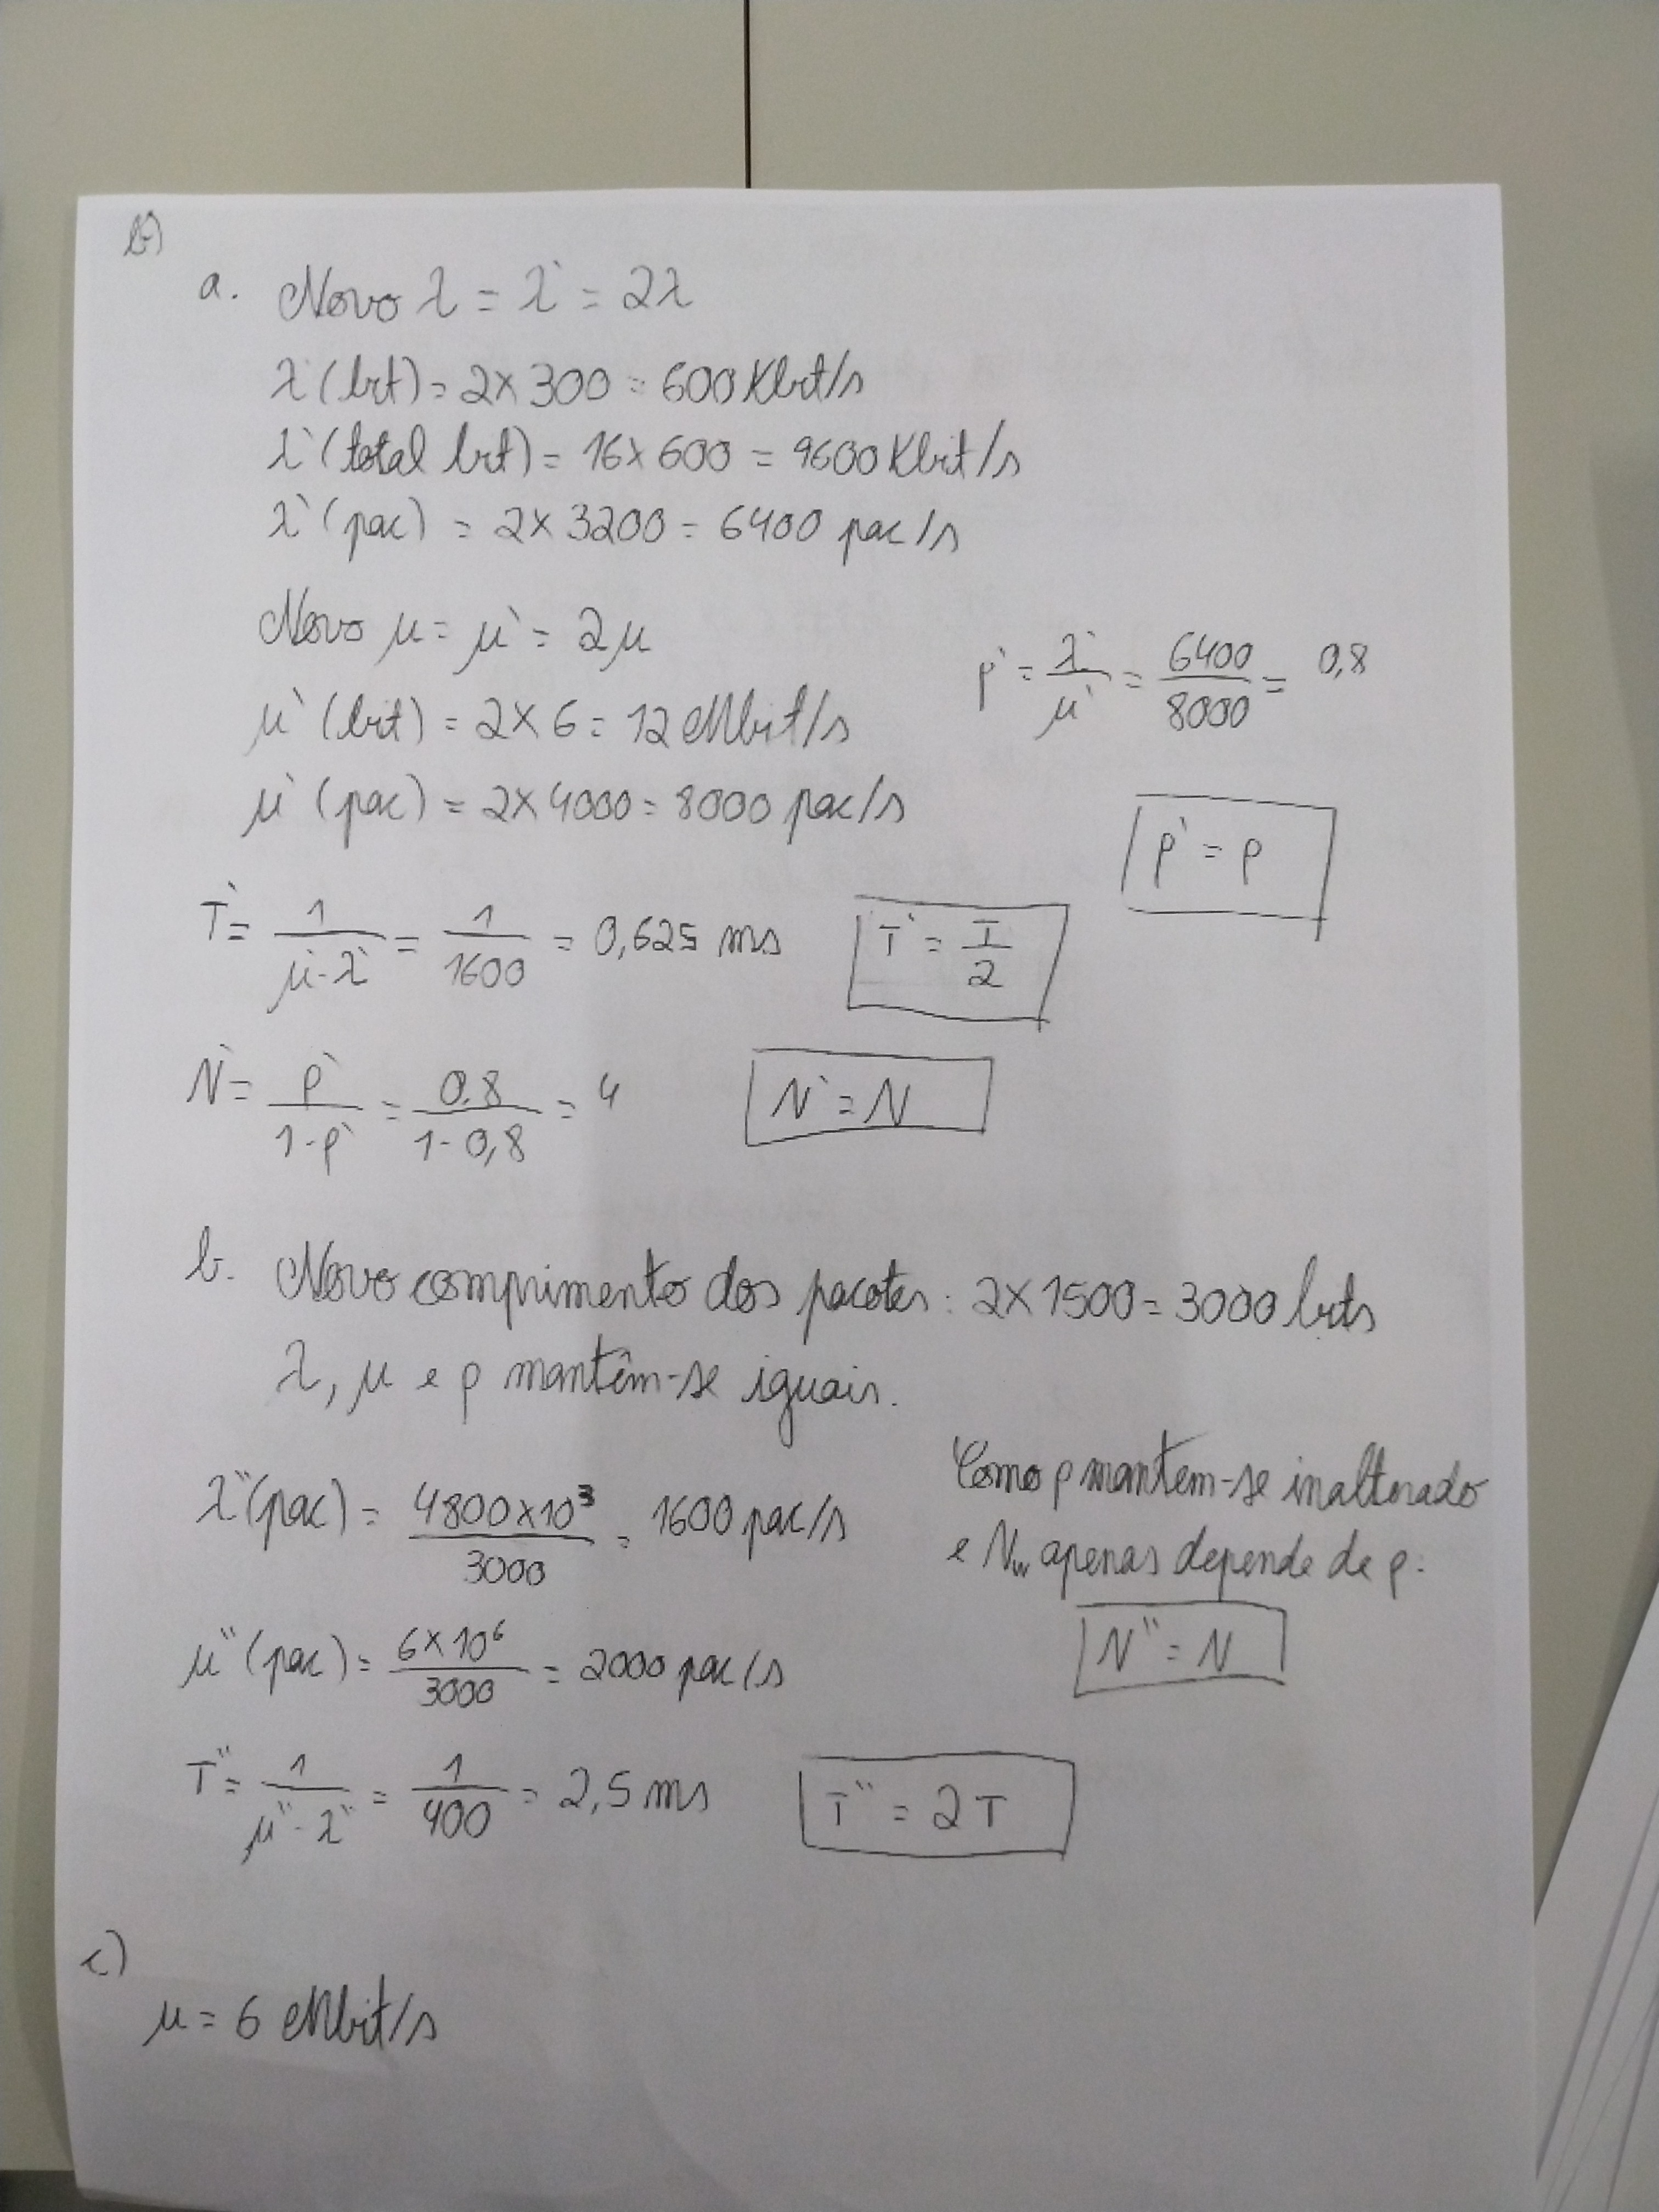 b)
a. Novo λ = λ` = 2λ
λ`(bit) = 2 × 300 = 600 Kbit/s
λ`(total bit) = 16 × 600 = 9600 Kbit/s
λ`(pac) = 2 × 3200 = 6400 pac/s
Novo μ = μ` = 2μ
ρ` = λ`/μ` = 6400/8000 = 0,8
μ`(bit) = 2 × 6 = 12 Mbit/s
μ`(pac) = 2 × 4000 = 8000 pac/s
ρ` = ρ
T` = 1/(μ` - λ`) = 1/1600 = 0,625 ms
T` = T/2
N` = ρ`/(1 - ρ`) = 0,8/(1 - 0,8) = 4
N` = N
b. Novo comprimento dos pacotes: 2 × 1500 = 3000 bits
λ, μ e ρ mantêm-se iguais.
λ``(pac) = 4800×10³/3000 = 1600 pac/s
Como ρ mantem-se inalterado
e Nw apenas depende de ρ:
N`` = N
μ``(pac) = 6×10⁶/3000 = 2000 pac/s
T`` = 1/(μ`` - λ``) = 1/400 = 2,5 ms
T`` = 2T
c)
μ = 6 Mbit/s